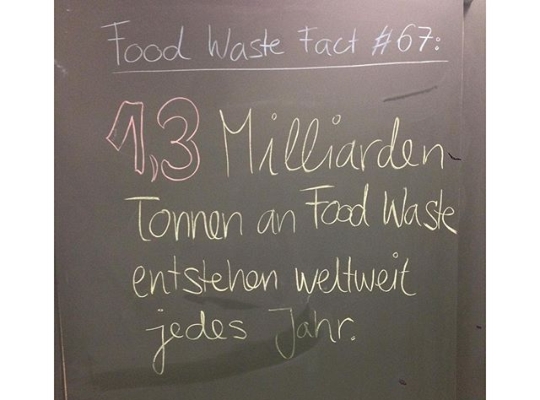 Food Waste Fact #67:
1,3 Milliarden
Tonnen an Food Waste
entstehen weltweit
jedes Jahr.